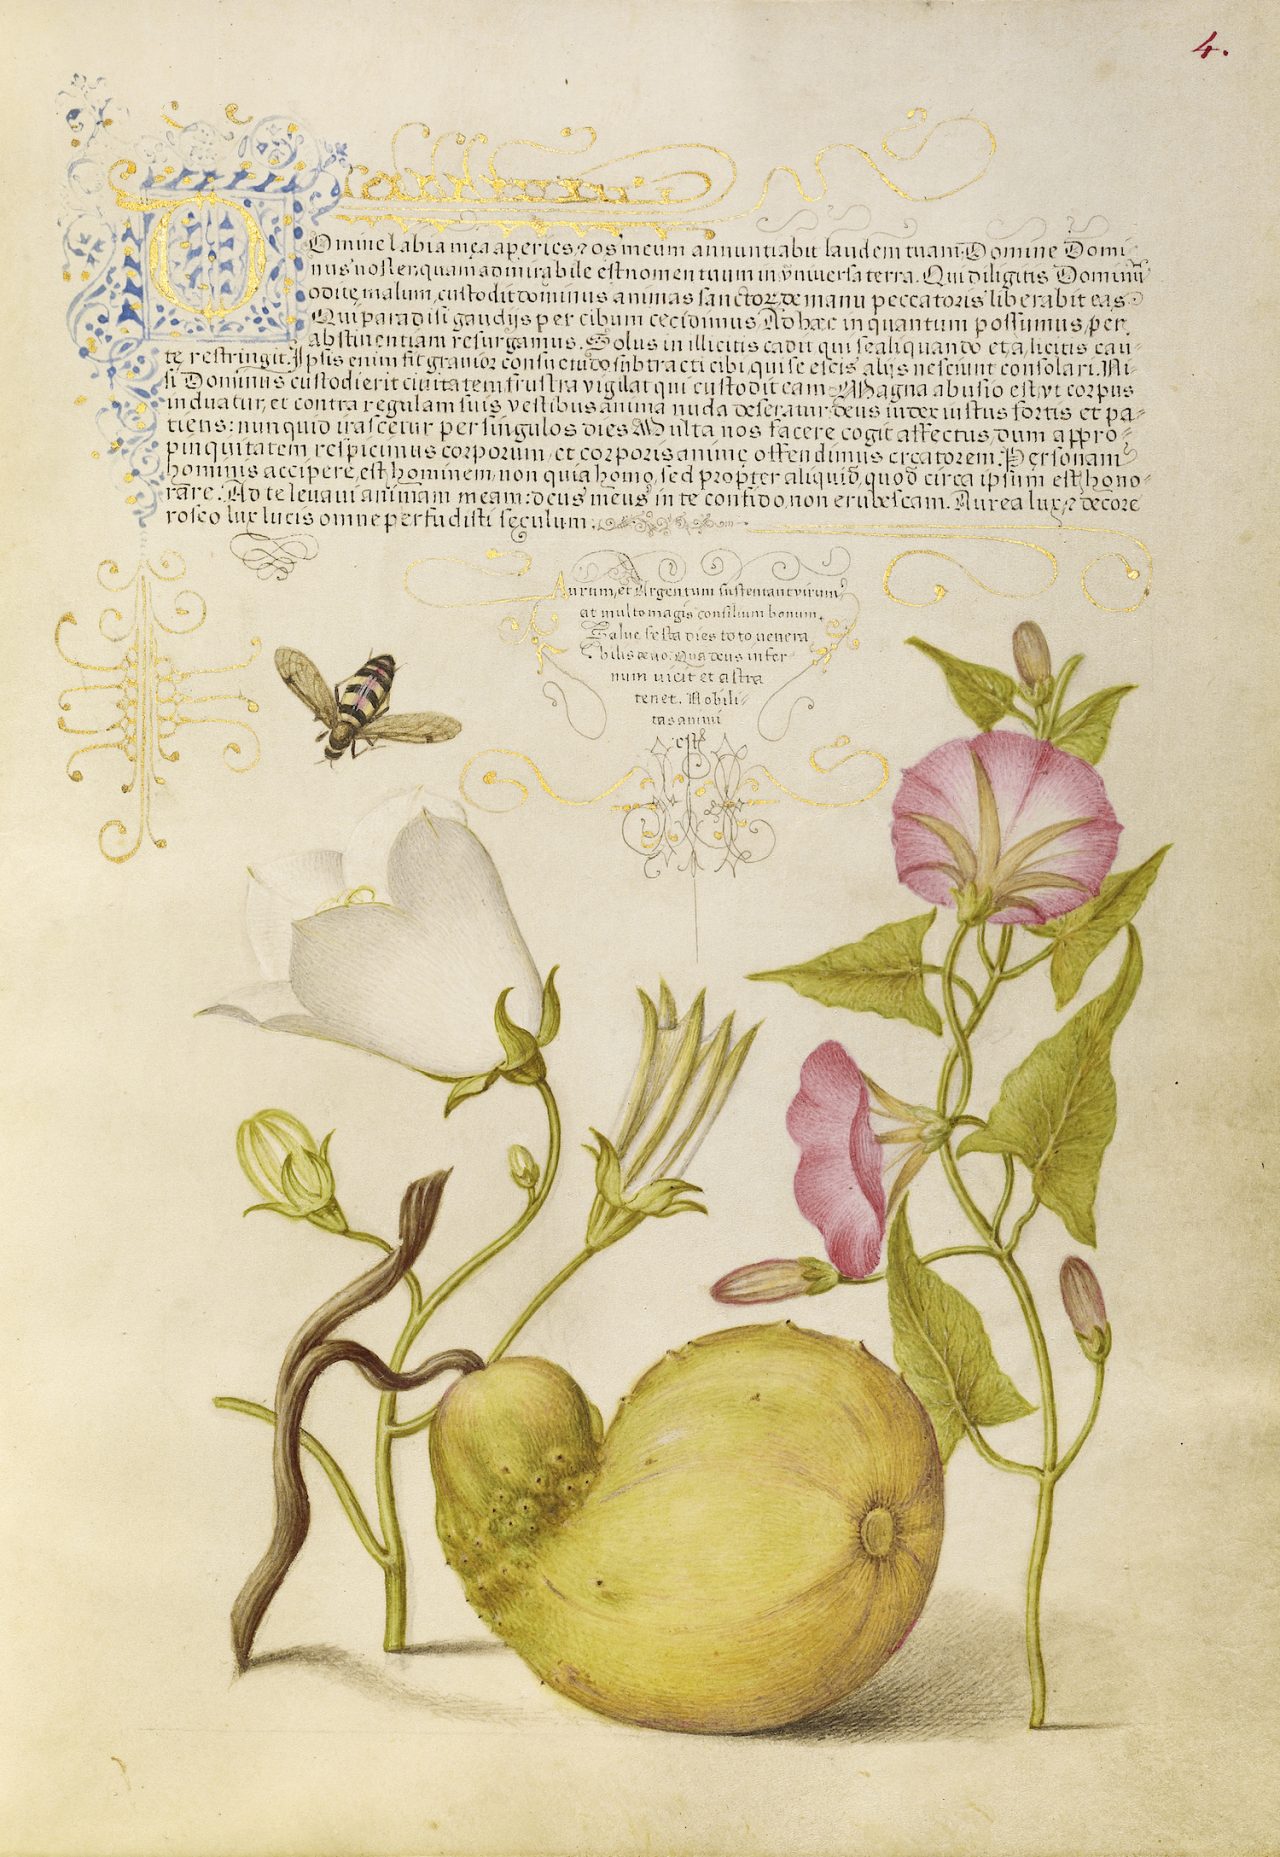 4.
Domine labia mea aperies, et os meum annuntiabit laudem tuam. Domine Domi-
nus noster, quam admirabile est nomen tuum in vniversa terra. Qui diligitis Dominum
odite malum, custodit dominus animas sanctor. de manu peccatoris liberabit eas.
Qui paradisi gaudijs per cibum cecidimus, Ad hæc in quantum possumus, per
abstinentiam resurgamus. Solus in illicitis cadit qui se aliquando et a licitis cau-
te restringit. Ipsis enim fit gravior consuetudo subtracti cibi, qui se escis alijs nesciunt consolari. Ni-
si Dominus custodierit civitatem frustra vigilat qui custodit eam. Magna abusio est, vt corpus
induatur, et contra regulam suis vestibus anima nuda deseratur. deus iudex iustus fortis et pa-
tiens: nunquid irascetur per singulos dies. Multa nos facere cogit affectus, dum appro-
pinquitatem respicimus corporum, et corporis animę offendimus creatorem. Personam
hominis accipere, est hominem, non quia homo, sed propter aliquid, quod circa ipsum est hono-
rare. Ad te levavi animam meam: deus meus in te confido, non erubescam. Aurea lux, et decore
roseo lux lucis omne perfudisti sęculum.
Aurum, et Argentum sustentant virum,
at multo magis consilium bonum.
Salue festa dies toto venera
bilis ævo. Qua deus infer
num vicit et astra
tenet. Nobili-
tas animi
est.